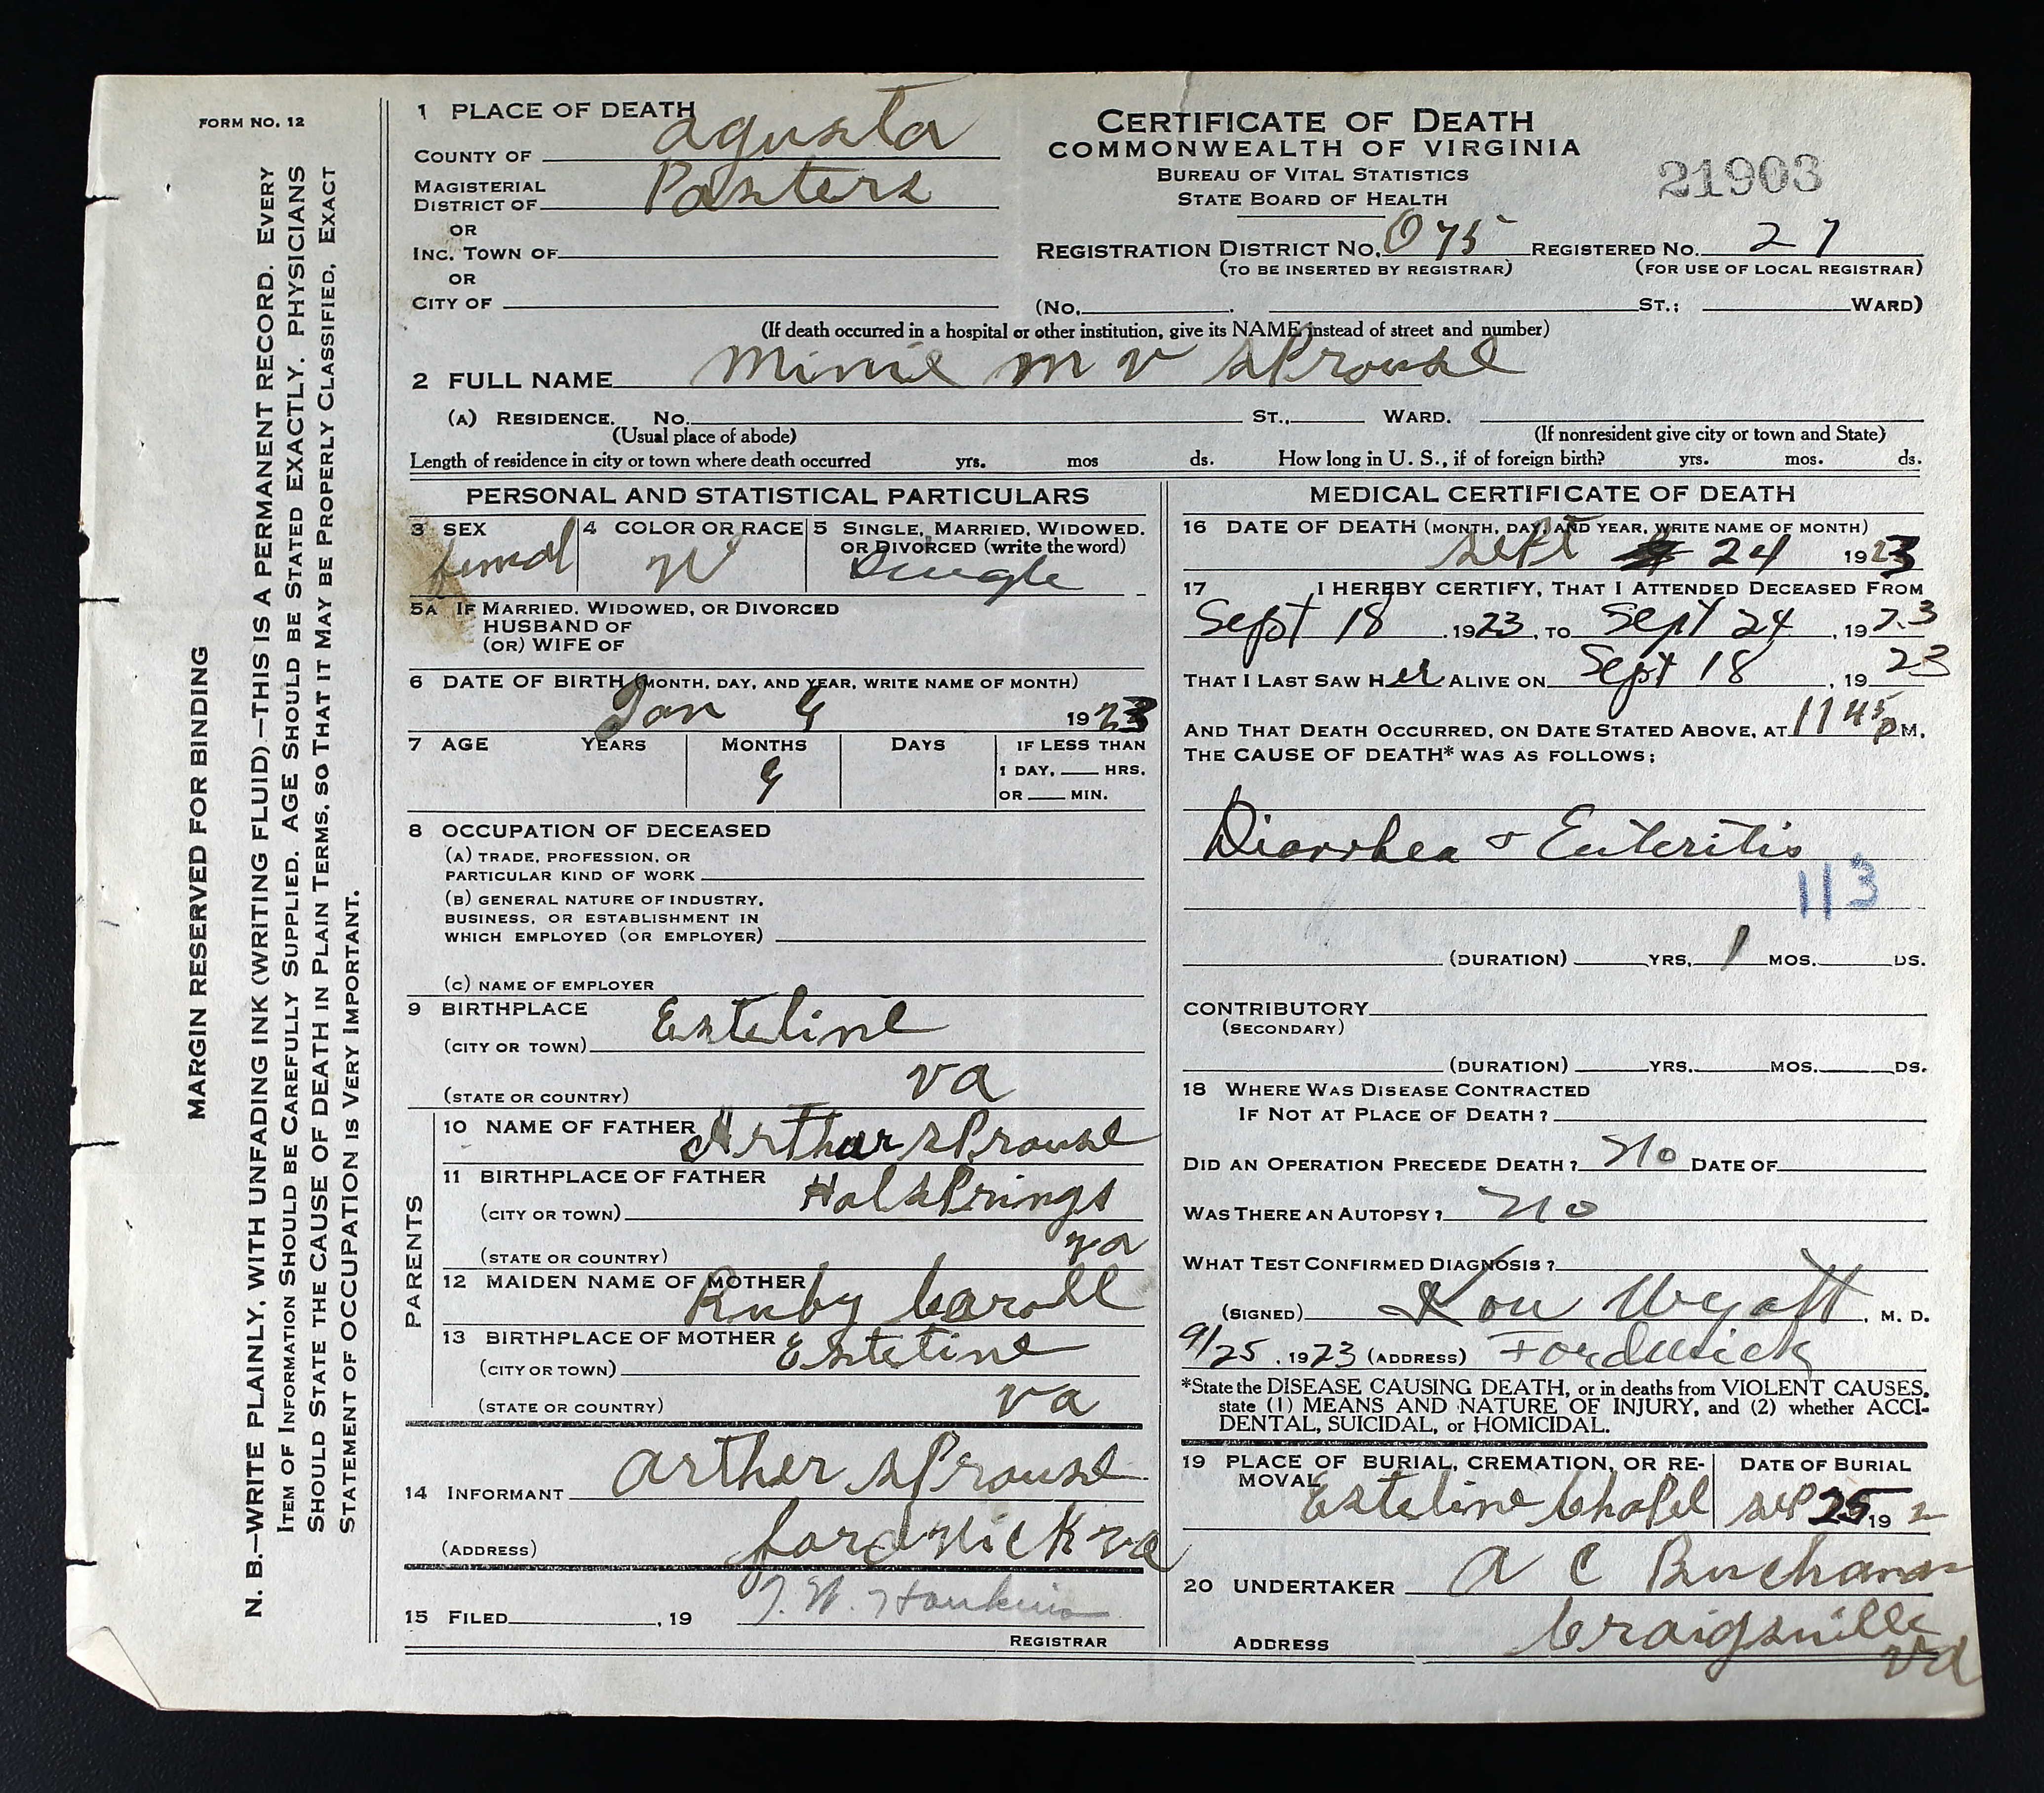 FORM NO. 12
MARGIN RESERVED FOR BINDING
N. B.—WRITE PLAINLY, WITH UNFADING INK (WRITING FLUID).—THIS IS A PERMANENT RECORD. EVERY
ITEM OF INFORMATION SHOULD BE CAREFULLY SUPPLIED. AGE SHOULD BE STATED EXACTLY. PHYSICIANS
SHOULD STATE THE CAUSE OF DEATH IN PLAIN TERMS, SO THAT IT MAY BE PROPERLY CLASSIFIED. EXACT
STATEMENT OF OCCUPATION IS VERY IMPORTANT.
1 PLACE OF DEATH
COUNTY OF agusta
MAGISTERIAL
DISTRICT OF Pasters
OR
INC. TOWN OF
OR
CITY OF
CERTIFICATE OF DEATH
COMMONWEALTH OF VIRGINIA
BUREAU OF VITAL STATISTICS
STATE BOARD OF HEALTH
21903
REGISTRATION DISTRICT NO. 075 REGISTERED NO. 27
(TO BE INSERTED BY REGISTRAR) (FOR USE OF LOCAL REGISTRAR)
(No. ST.; WARD)
(If death occurred in a hospital or other institution, give its NAME instead of street and number)
2 FULL NAME Minie m v sProuse
(A) RESIDENCE. No. ST., WARD.
(Usual place of abode) (If nonresident give city or town and State)
Length of residence in city or town where death occurred yrs. mos ds. How long in U. S., if of foreign birth? yrs. mos. ds.
PERSONAL AND STATISTICAL PARTICULARS
3 SEX 4 COLOR OR RACE 5 SINGLE, MARRIED, WIDOWED,
OR DIVORCED (write the word)
femal W Single
5A IF MARRIED, WIDOWED, OR DIVORCED
HUSBAND OF
(OR) WIFE OF
6 DATE OF BIRTH (MONTH, DAY, AND YEAR, WRITE NAME OF MONTH)
Jan 9 1923
7 AGE YEARS MONTHS DAYS IF LESS THAN
1 DAY, HRS.
9
OR MIN.
8 OCCUPATION OF DECEASED
(A) TRADE, PROFESSION, OR
PARTICULAR KIND OF WORK
(B) GENERAL NATURE OF INDUSTRY,
BUSINESS, OR ESTABLISHMENT IN
WHICH EMPLOYED (OR EMPLOYER)
(C) NAME OF EMPLOYER
9 BIRTHPLACE
(CITY OR TOWN) Esteline
(STATE OR COUNTRY) va
PARENTS
10 NAME OF FATHER Arthur sProuse
11 BIRTHPLACE OF FATHER
(CITY OR TOWN) HotsPrings
(STATE OR COUNTRY) va
12 MAIDEN NAME OF MOTHER
Ruby Caroll
13 BIRTHPLACE OF MOTHER
(CITY OR TOWN) Esteline
(STATE OR COUNTRY) va
14 INFORMANT arther sProuse
(ADDRESS) fordwick va
15 FILED , 19
REGISTRAR
MEDICAL CERTIFICATE OF DEATH
16 DATE OF DEATH (MONTH, DAY, AND YEAR, WRITE NAME OF MONTH)
sept 24 1923
17 I HEREBY CERTIFY, THAT I ATTENDED DECEASED FROM
Sept 18 , 1923, TO Sept 24 , 1923
THAT I LAST SAW Her ALIVE ON Sept 18 , 19 23
AND THAT DEATH OCCURRED, ON DATE STATED ABOVE, AT 11 45 P M.
THE CAUSE OF DEATH* WAS AS FOLLOWS:
Diarrhea & Enteritis
113
(DURATION) YRS. 1 MOS. DS.
CONTRIBUTORY
(SECONDARY)
(DURATION) YRS. MOS. DS.
18 WHERE WAS DISEASE CONTRACTED
IF NOT AT PLACE OF DEATH?
DID AN OPERATION PRECEDE DEATH? No DATE OF
WAS THERE AN AUTOPSY? No
WHAT TEST CONFIRMED DIAGNOSIS?
(SIGNED) Kou Wyatt , M. D.
9/25 , 1923 (ADDRESS) Fordwick
*State the DISEASE CAUSING DEATH, or in deaths from VIOLENT CAUSES,
state (1) MEANS AND NATURE OF INJURY, and (2) whether ACCI-
DENTAL, SUICIDAL, or HOMICIDAL.
19 PLACE OF BURIAL, CREMATION, OR RE- DATE OF BURIAL
MOVAL
Esteline Chapel seP 25 19 2
20 UNDERTAKER A C Buchanan
ADDRESS Craigsville
va